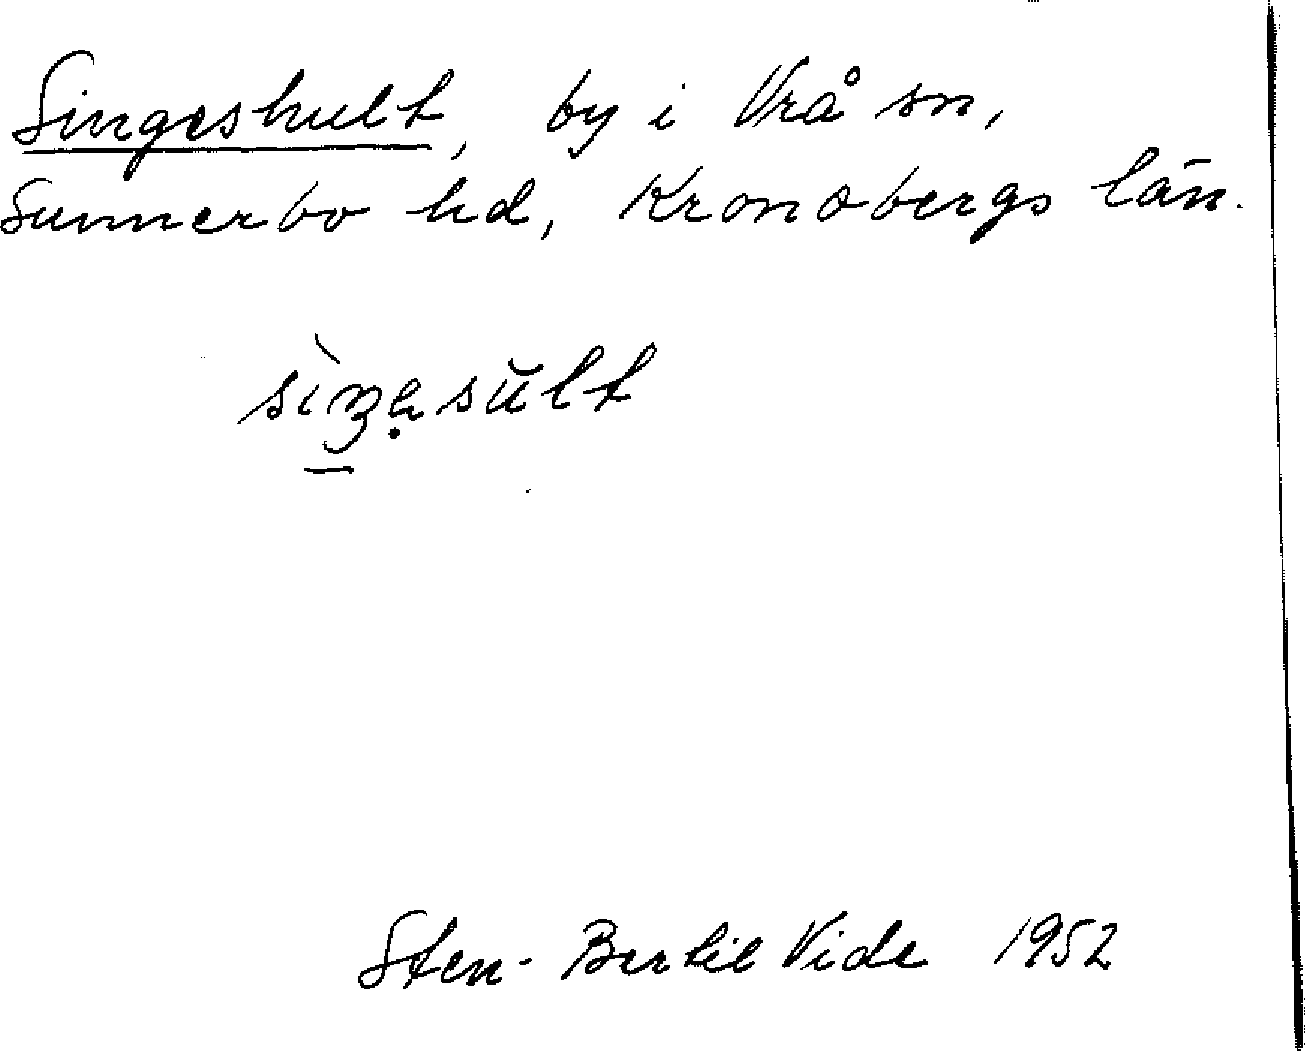 Singeshult, by i Vrå sn,
Sunnerbo hd, Kronobergs län.
sìŋəsŭlt
Sten-Bertil Vide 1952